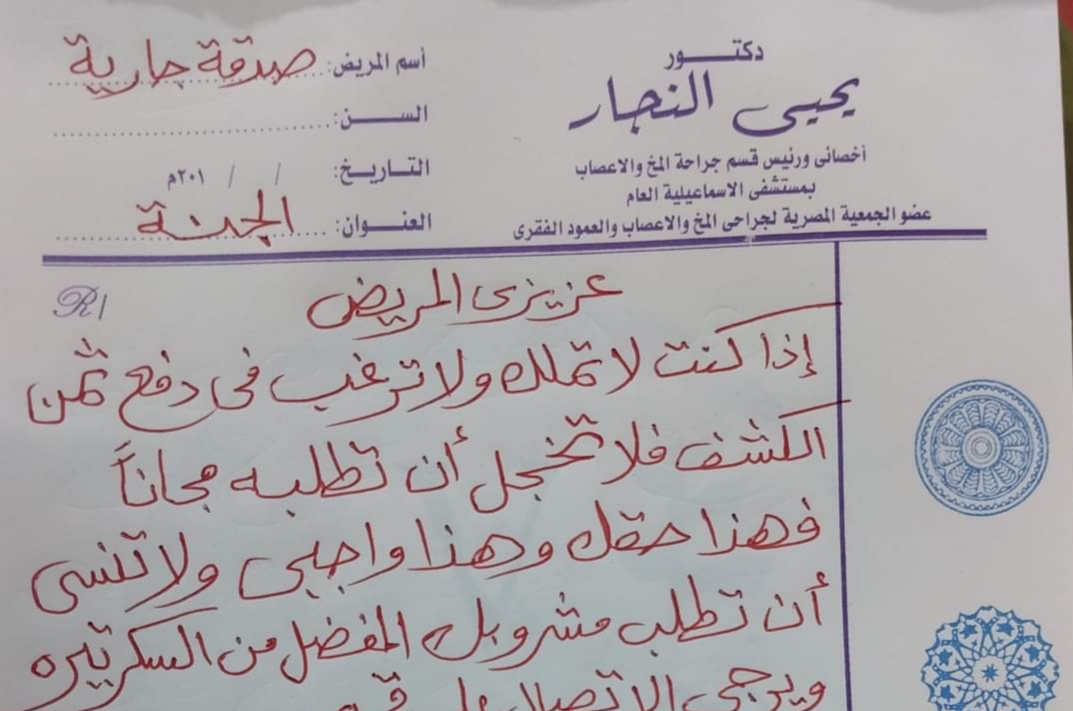 دكتــــور
يحيى النجار
أخصائى ورئيس قسم جراحة المخ والاعصاب
بمستشفى الاسماعيلية العام
عضو الجمعية المصرية لجراحى المخ والاعصاب والعمود الفقرى
أسم المريض: صدقة جارية
الســـن:
التـاريـخ: / / ٢٠١م
العنـــوان: الجنة
R/
عزيزى المريض
إذا كنت لا تملك ولا ترغب فى دفع ثمن
الكشف فلا تخجل أن تطلبه مجاناً
فهذا حقك وهذا واجبى ولا تنسى
أن تطلب مشروبك المفضل من السكرتيره
ويرجى الاتصال على رقم